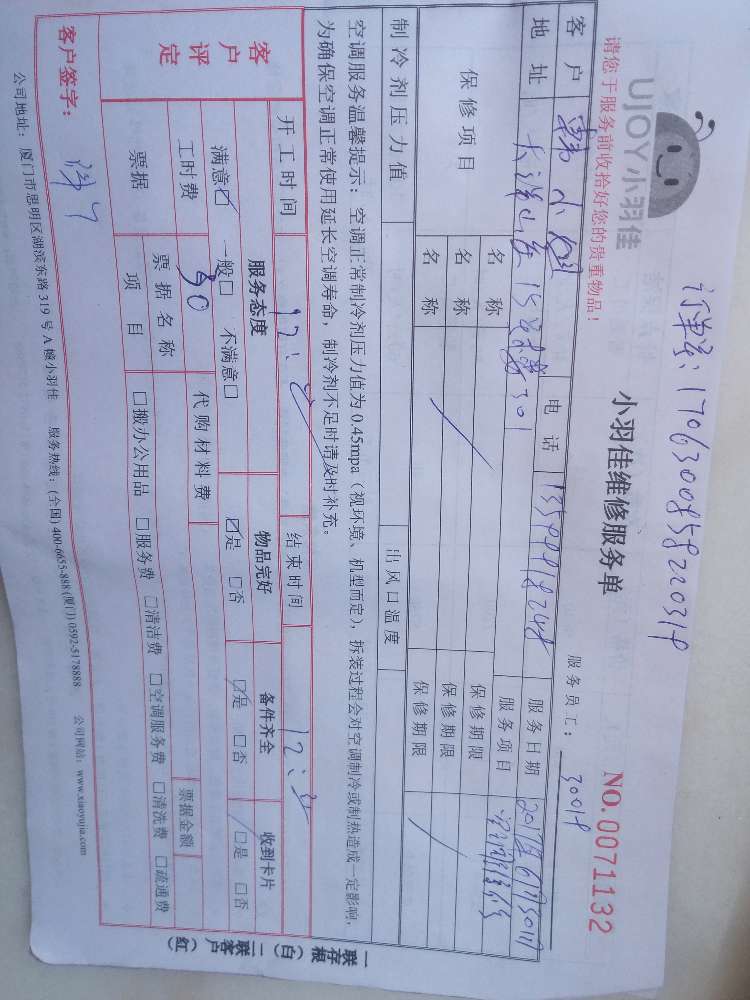 订单号:170630085822031P
UJOY小羽佳
小羽佳维修服务单
NO.0071132
请您于服务前收拾好您的贵重物品!
服务员工:3001P
客户 小姐 电话 服务日期 2017年6月30日
地址 301 服务项目 空调维修
保修项目 名称 保修期限
名称 保修期限
名称 保修期限
制冷剂压力值 出风口温度
空调服务温馨提示:空调正常制冷剂压力值为0.45mpa(视环境、机型而定),拆装过程会对空调制冷或制热造成一定影响,
为确保空调正常使用延长空调寿命,制冷剂不足时请及时补充。
开工时间 结束时间
客户评定 服务态度 物品完好 备件齐全 收到卡片
满意☑ 一般□ 不满意□ ☑是 □否 ☑是 □否 □是 □否
工时费 代购材料费
票据 票据名称 票据金额
项目 □搬办公用品 □服务费 □清洁费 □空调服务费 □清洗费 □疏通费
客户签字:
公司地址:厦门市思明区湖滨东路319号A幢小羽佳 服务热线:(全国)400-6655-888(厦门)0592-5178888 公司网站:www.xiaoyujia.com
一联存根(白) 二联客户(红)